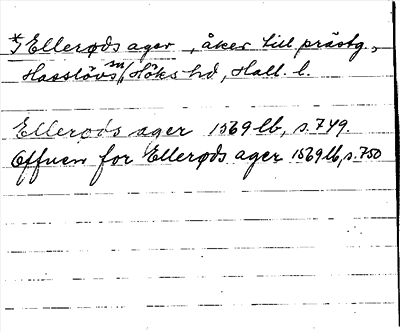 *) Ellerøds ager, åker till prästg.,
Hasslövs sn, Höks hd, Hall. l.
Ellerøds ager 1569 lb, s. 749.
Offuen for Ellerøds ager 1569 lb, s. 750